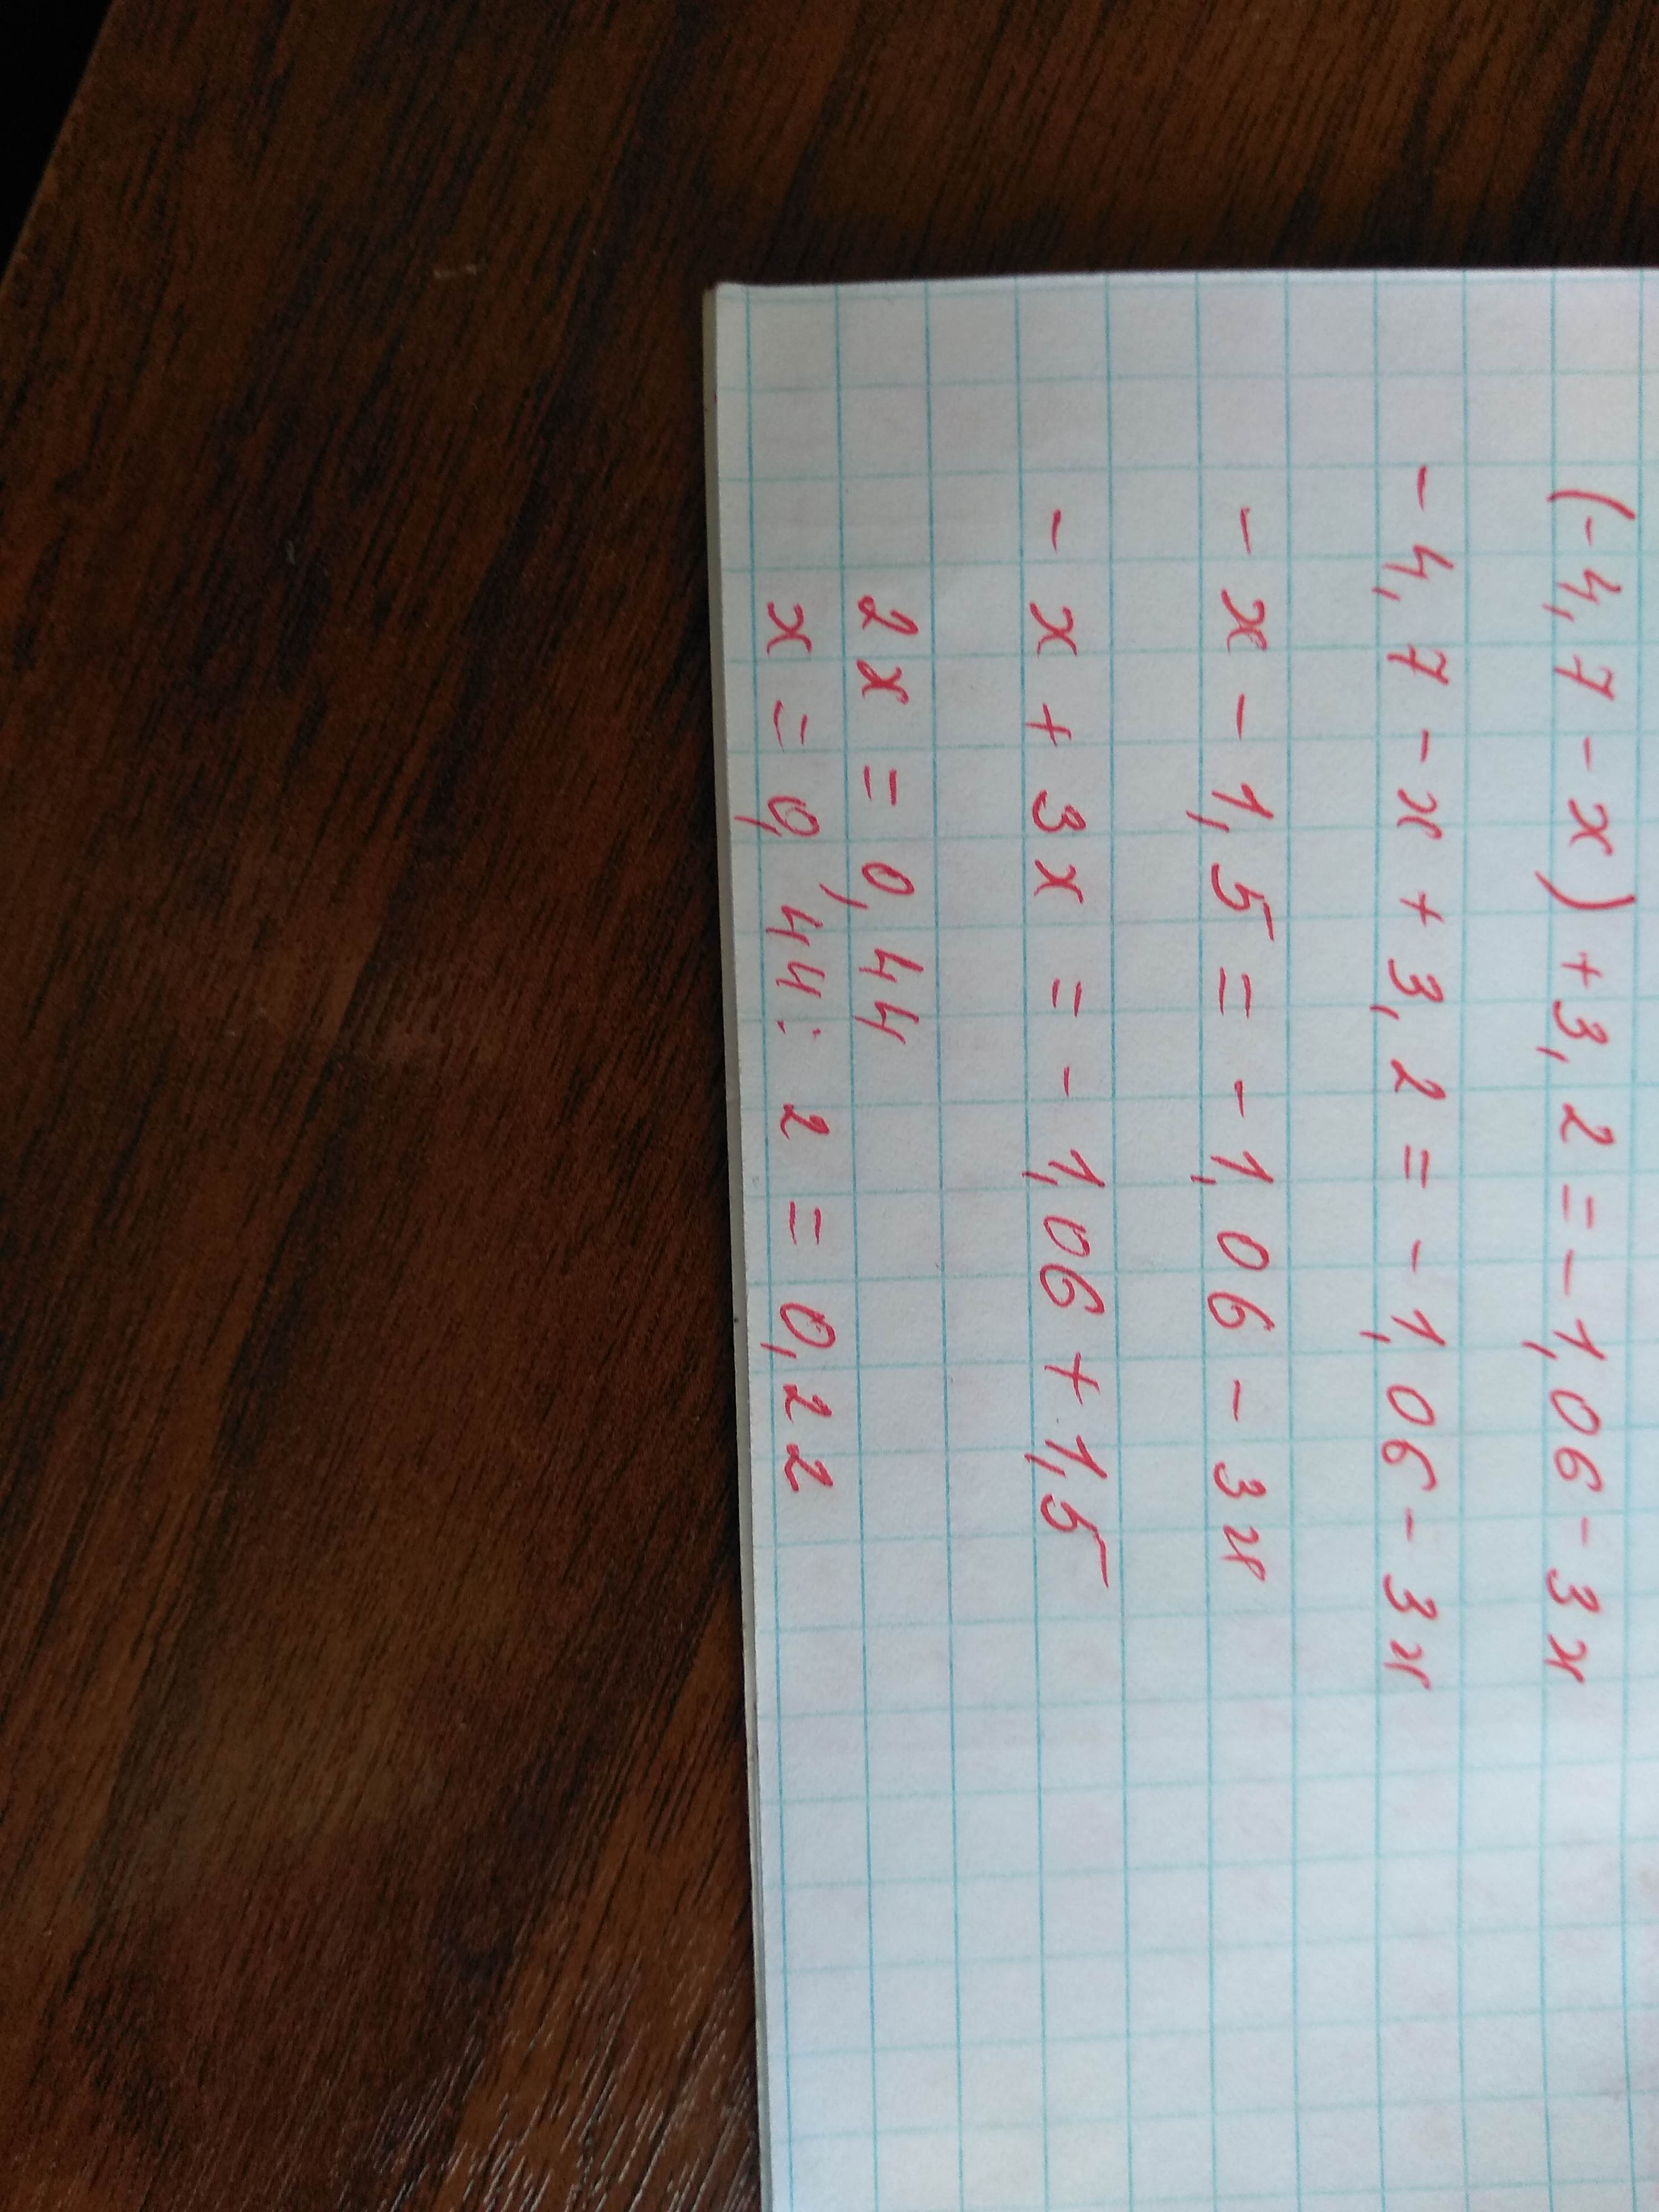 (-4,7-x)+3,2=-1,06-3x
-4,7-x+3,2=-1,06-3x
-x-1,5=-1,06-3x
-x+3x=-1,06+1,5
2x=0,44
x=0,44:2=0,22